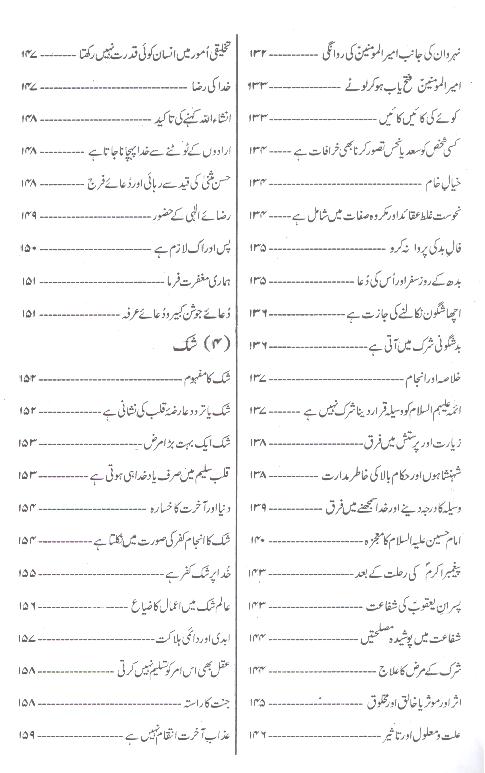 نہروان کی جانب امیرالمؤمنینؑ کی روانگی ---------- ۱۳۲
امیرالمؤمنینؑ فتح یاب ہو کر لوٹے ---------- ۱۳۳
کوئے کی کائیں کائیں ---------- ۱۳۳
کسی شخص کو سعد یا نحس تصور کرنا بھی خرافات ہے ---- ۱۳۴
خیالِ خام ---------- ۱۳۴
نحوست غلط عقائد اور مکروہ صفات میں شامل ہے ----- ۱۳۴
فالِ بد کی پروا نہ کرو ---------- ۱۳۵
بدھ کے روز سفر اور اُس کی دُعا ---------- ۱۳۵
اچھا شگون نکالنے کی جازت ہے ---------- ۱۳۶
بدشگونی شرک میں آتی ہے ---------- ۱۳۶
خلاصہ اور انجام ---------- ۱۳۷
ائمہ علیہم السلام کو وسیلہ قرار دینا شرک نہیں ہے ------ ۱۳۷
زیارت اور پرستش میں فرق ---------- ۱۳۸
شہنشاہوں اور حکام بالا کی خاطر مدارت ---------- ۱۳۸
وسیلہ کا درجہ دینے اور خدا سمجھنے میں فرق ---------- ۱۳۹
امام حسین علیہ السلام کا معجزہ ---------- ۱۴۰
پیغمبر اکرمؐ کی رحلت کے بعد ---------- ۱۴۳
پسرانِ یعقوبؑ کی شفاعت ---------- ۱۴۳
شفاعت میں پوشیدہ مصلحتیں ---------- ۱۴۴
شرک کے مرض کا علاج ---------- ۱۴۴
اثر اور موثر یا خالق اور مخلوق ---------- ۱۴۵
علت و معلول اور تاثیر ---------- ۱۴۶
تخلیقی اُمور میں انسان کوئی قدرت نہیں رکھتا ------- ۱۴۷
خدا کی رضا ---------- ۱۴۷
انشاء اللہ کہنے کی تاکید ---------- ۱۴۸
ارادوں کے ٹوٹنے سے خدا پہچانا جاتا ہے ---------- ۱۴۸
حسن مثنٰی کی قید سے رہائی اور دُعائے فرج ------- ۱۴۸
رضائے الٰہی کے حضور ---------- ۱۴۹
پس ادراک لازم ہے ---------- ۱۵۰
ہماری مغفرت فرما ---------- ۱۵۱
دُعائے جوشن کبیر و دُعائے عرفہ ---------- ۱۵۱
(۴) شک
شک کا مفہوم ---------- ۱۵۲
شک یا تردد عارضۂ قلب کی نشانی ہے ---------- ۱۵۲
شک ایک بہت بڑا مرض ---------- ۱۵۳
قلبِ سلیم میں صرف یادِ خدا ہی ہوتی ہے ---------- ۱۵۳
دنیا اور آخرت کا خسارہ ---------- ۱۵۴
شک کا انجام کفر کی صورت میں نکلتا ہے ---------- ۱۵۴
خُدا پر شک کفر ہے ---------- ۱۵۵
عالمِ شک میں اعمال کا ضیاع ---------- ۱۵۶
ابدی اور دائمی ہلاکت ---------- ۱۵۷
عقل بھی اس امر کو تسلیم نہیں کرتی ---------- ۱۵۸
جنت کا راستہ ---------- ۱۵۸
عذابِ آخرت انتقام نہیں ہے ---------- ۱۵۹